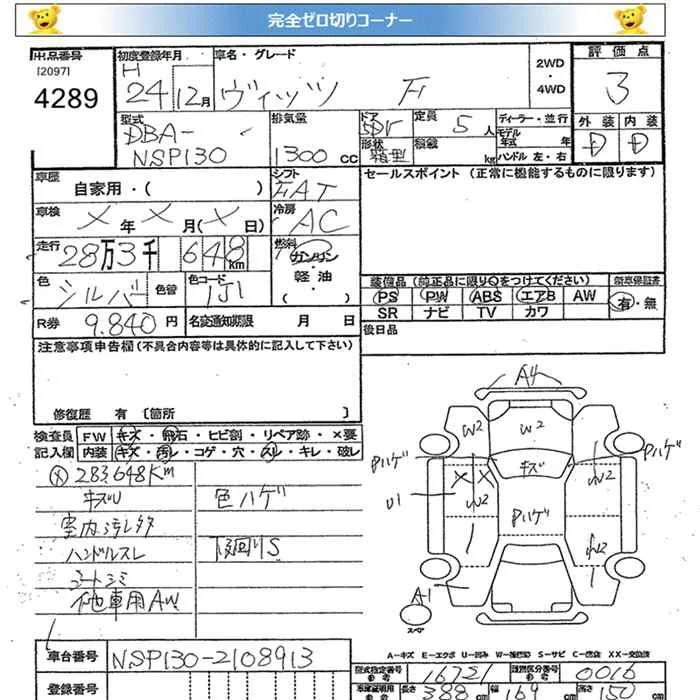 完全ゼロ切りコーナー
出品番号 初度登録年月 車名・グレード 2WD ・ 4WD 評価点
[2097] H
4289 24 12月 ヴィッツ F 3
型式 排気量 ドア 5Dr 定員 5人 ディーラー・並行 外装 内装
DBA- 形状 積載 モデル年式 年 D D
NSP130 1300cc 箱型 kg ハンドル 左・右
車歴 自家用・( ) シフト FAT セールスポイント (正常に機能するものに限ります)
車検 X年X月(X日) 冷房 AC
走行 28万3千648km 燃料 ガソリン
軽油
( )
色 シルバー 色替 色コード 1J1 装備品 (純正品に限り○をつけてください) 新車保証書
PS PW ABS エアB AW 有・無
R券 9.840円 名変通知期限 月 日 SR ナビ TV カワ
後日品
注意事項申告欄(不具合内容等は具体的に記入して下さい)
修復歴 有 〔箇所 〕
検査員 FW キズ・飛石・ヒビ割・リペア跡・×要
記入欄 内装 キズ・汚レ・コゲ・穴・スレ・キレ・破レ
Ⓧ283,648Km
キズU 色ハゲ
室内汚レ多
ハンドルスレ 下回りS
シートシミ
他車用AW
A4
W2 W2 W2
Pハゲ キズ Pハゲ
U1 XX W2 W2
Pハゲ
W2
A1
スペア
A－キズ E－エクボ U－凹み W－補修跡 S－サビ C－腐蝕 XX－交換済
車台番号 NSP130-2108913 型式指定番号 16721 類別区分番号 0016
登録番号 長さ 388cm 幅 169cm 高さ 152cm